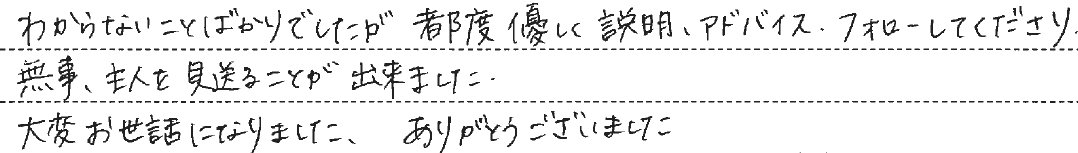 わからないことばかりでしたが 都度優しく説明、アドバイス、フォローしてくださり、
無事、主人を見送ることが出来ました.
大変お世話になりました、 ありがとうございました